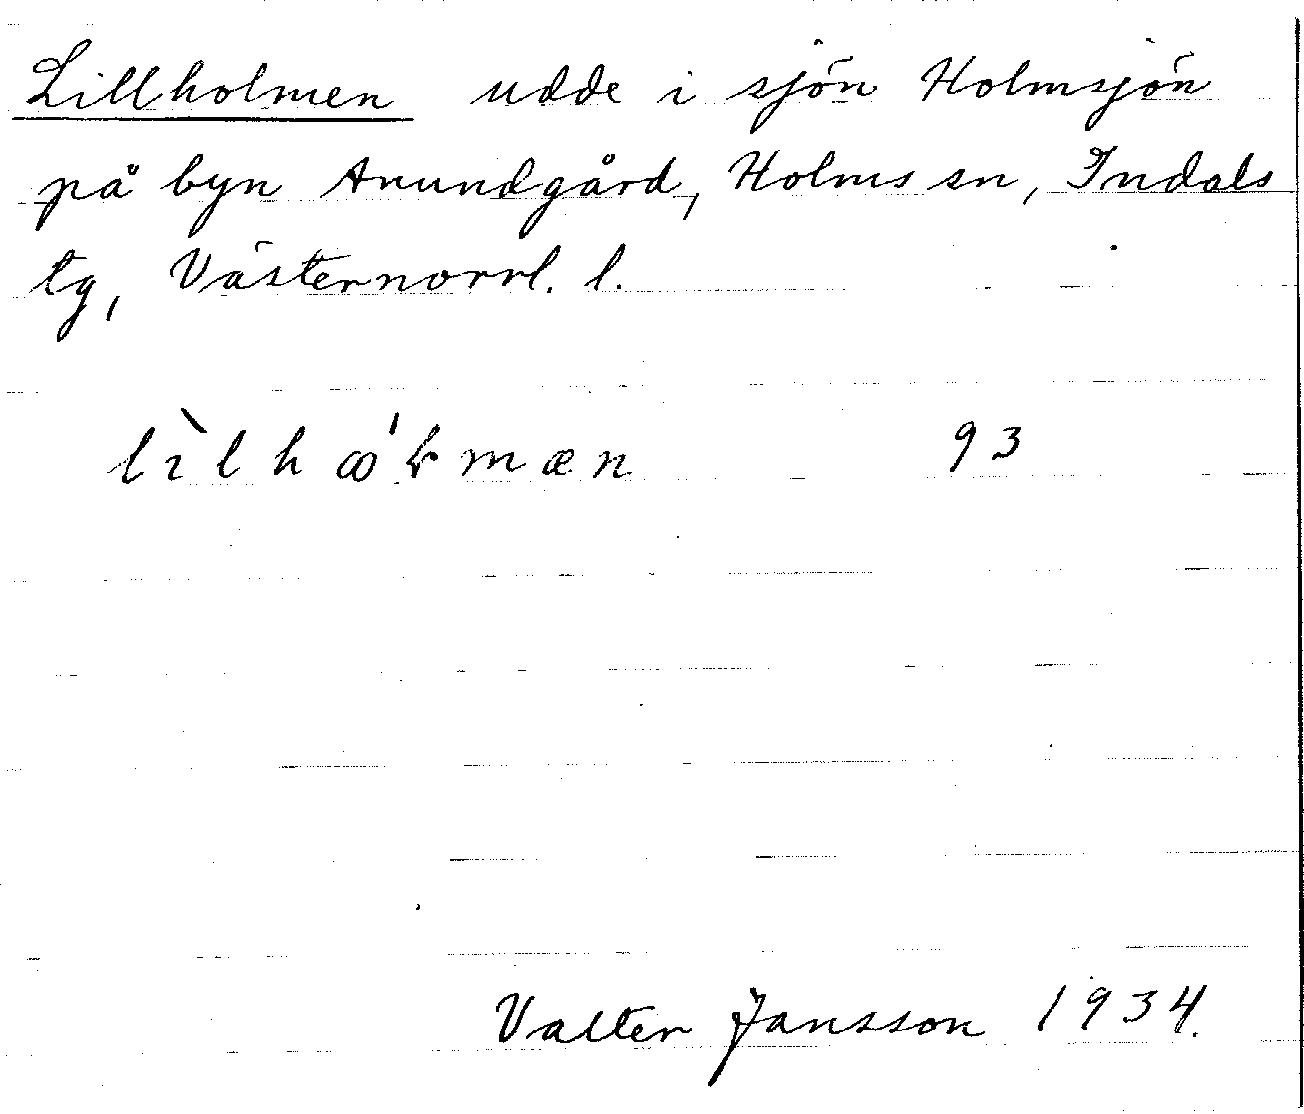 Lillholmen udde i sjön Holmsjön
på byn Anundgård, Holms sn, Indals
tg, Västernorrl. l.
lìlhꝏ́ɽmæn 93
Valter Jansson 1934.